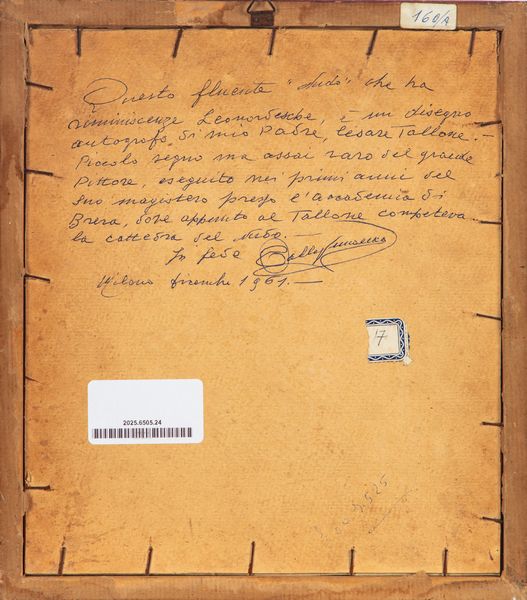 160/A
Questo fluente "Nudo" che ha
reminiscenze Leonardesche, è un disegno
autografo di mio Padre, Cesare Tallone. -
Piccolo segno ma assai raro del grande
Pittore, eseguito nei primi anni del
suo magistero presso l'accademia di
Brera, dove appunto al Tallone competeva
la cattedra del Nudo. —
In fede
Milano dicembre 1961. —
17
2025.6505.24